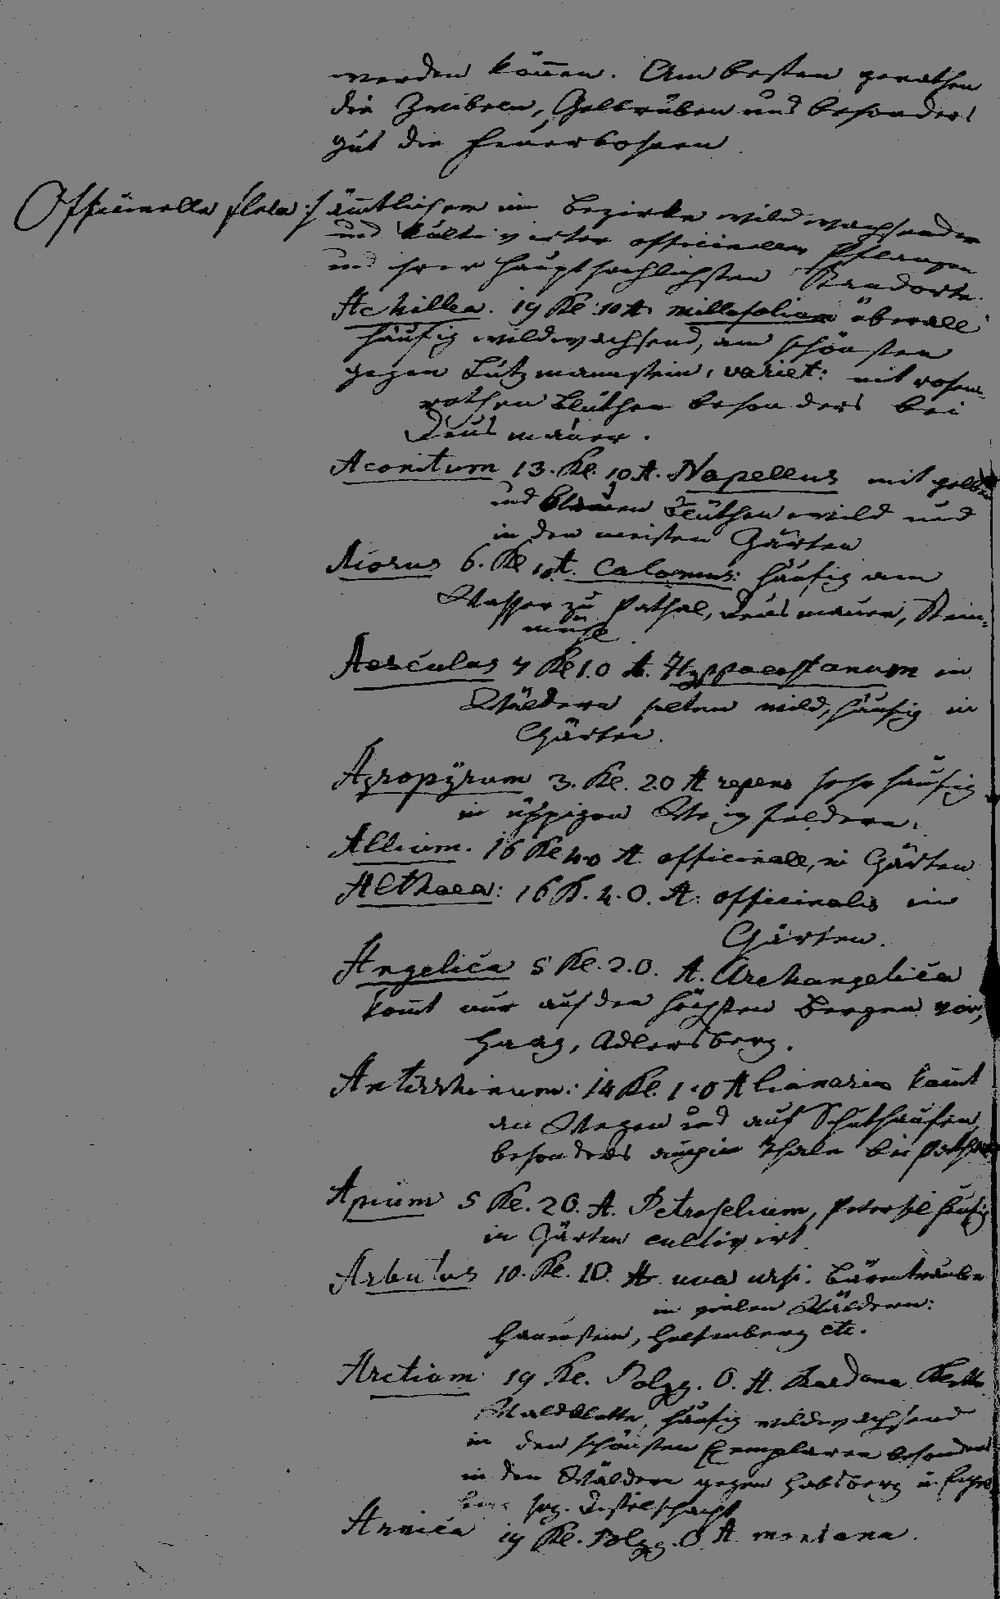 werden können. Am besten gerathen
die Zwibeln, Gelbrüben und besonders
gut die Feuerbohnen.
Officinelle Flora: sämtlicher im Bezirke wild wachsender
und kultivirter officineller Pflanzen
und ihrer hauptsächlichsten Standorte.
Achillea. 19 Kl. 10 A. millefolium überall
häufig wildwachsend, am schönsten
gegen Lutzmannstein, variet: mit rosen-
rothen Blüthen besonders bei
Deusmauer.
Aconitum 13. Kl. 10 A. Napellus mit gelben
und blauen Blüthen wild und
in den meisten Gärten
Acorus 6. Kl. 10 A. Calamus: häufig am
Wasser zu Pathal, Deusmauer, Stein-
mühl
Aesculus 7 Kl 1.0 A. Hyppocastanum in
Wäldern selten wild, häufig in
Gärten.
Agropÿrum 3. Kl. 2.0 A repens sehr häufig
in üppigen Steinfeldern.
Allium. 16 Kl 4.0 A officinale, in Gärten
Althaea: 16 K. 4.0. A. officinalis in
Gärten.
Angelica 5 Kl. 2.0. A. Archangelica
komt nur auf den höchsten Bergen vor,
Haag, Adlersberg.
Antirrhinum: 14 Kl. 1.0 A linaria komt
an Wegen und auf Schuthaufen,
besonders im Thale bei Pathal
Apium 5 Kl. 20. A. Petroselium, Petersil häufig
in Gärten cultivirt
Arbutus 10. Kl. 10. A. uva ursi. Bärentraube
in vielen Wäldern:
Hauenstein, Helfenberg etc.
Arctium 19 Kl. Polyg. O. A. Bardana Klette
Waldklette, häufig wildwachsend
in den schönsten Exemplaren besonders
in den Wäldern gegen Habsberg u.
sog.
Arnica 19 Kl. Polyg. O A montana.